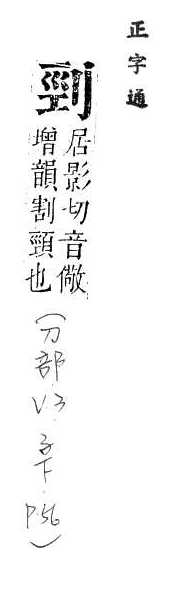 正字通
剄
居影切音儆
增韻割頸也
(刀部 V3 子下 P56)